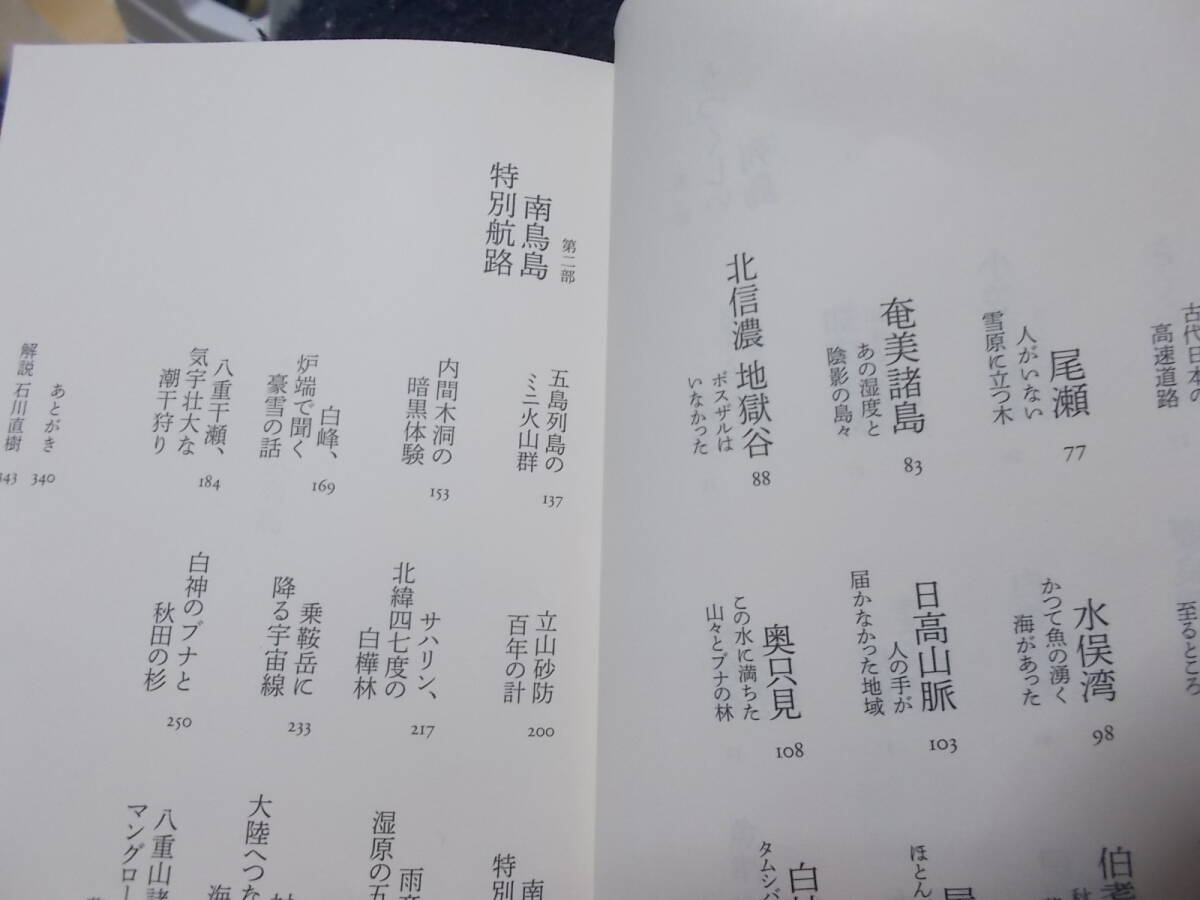 古代日本の
高速道路
尾瀬
人がいない
雪原に立つ木
77
奄美諸島
あの湿度と
陰影の島々
83
北信濃 地獄谷
ボスザルは
いなかった
88
至るところ
水俣湾
かつて魚の湧く
海があった
98
日高山脈
人の手が
届かなかった地域
103
奥只見
この水に満ちた
山々とブナの林
108
伯耆
ほとん
白
タムシバ
第二部
南鳥島
特別航路
五島列島の
ミニ火山群
137
内間木洞の
暗黒体験
153
白峰、
炉端で聞く
豪雪の話
169
八重干瀬、
気宇壮大な
潮干狩り
184
立山砂防
百年の計
200
サハリン、
北緯四七度の
白樺林
217
乗鞍岳に
降る宇宙線
233
白神のブナと
秋田の杉
250
南
特別
雨
湿原の五
大陸へつな
海
八重山諸
マングロー
あとがき
340
解説 石川直樹
343